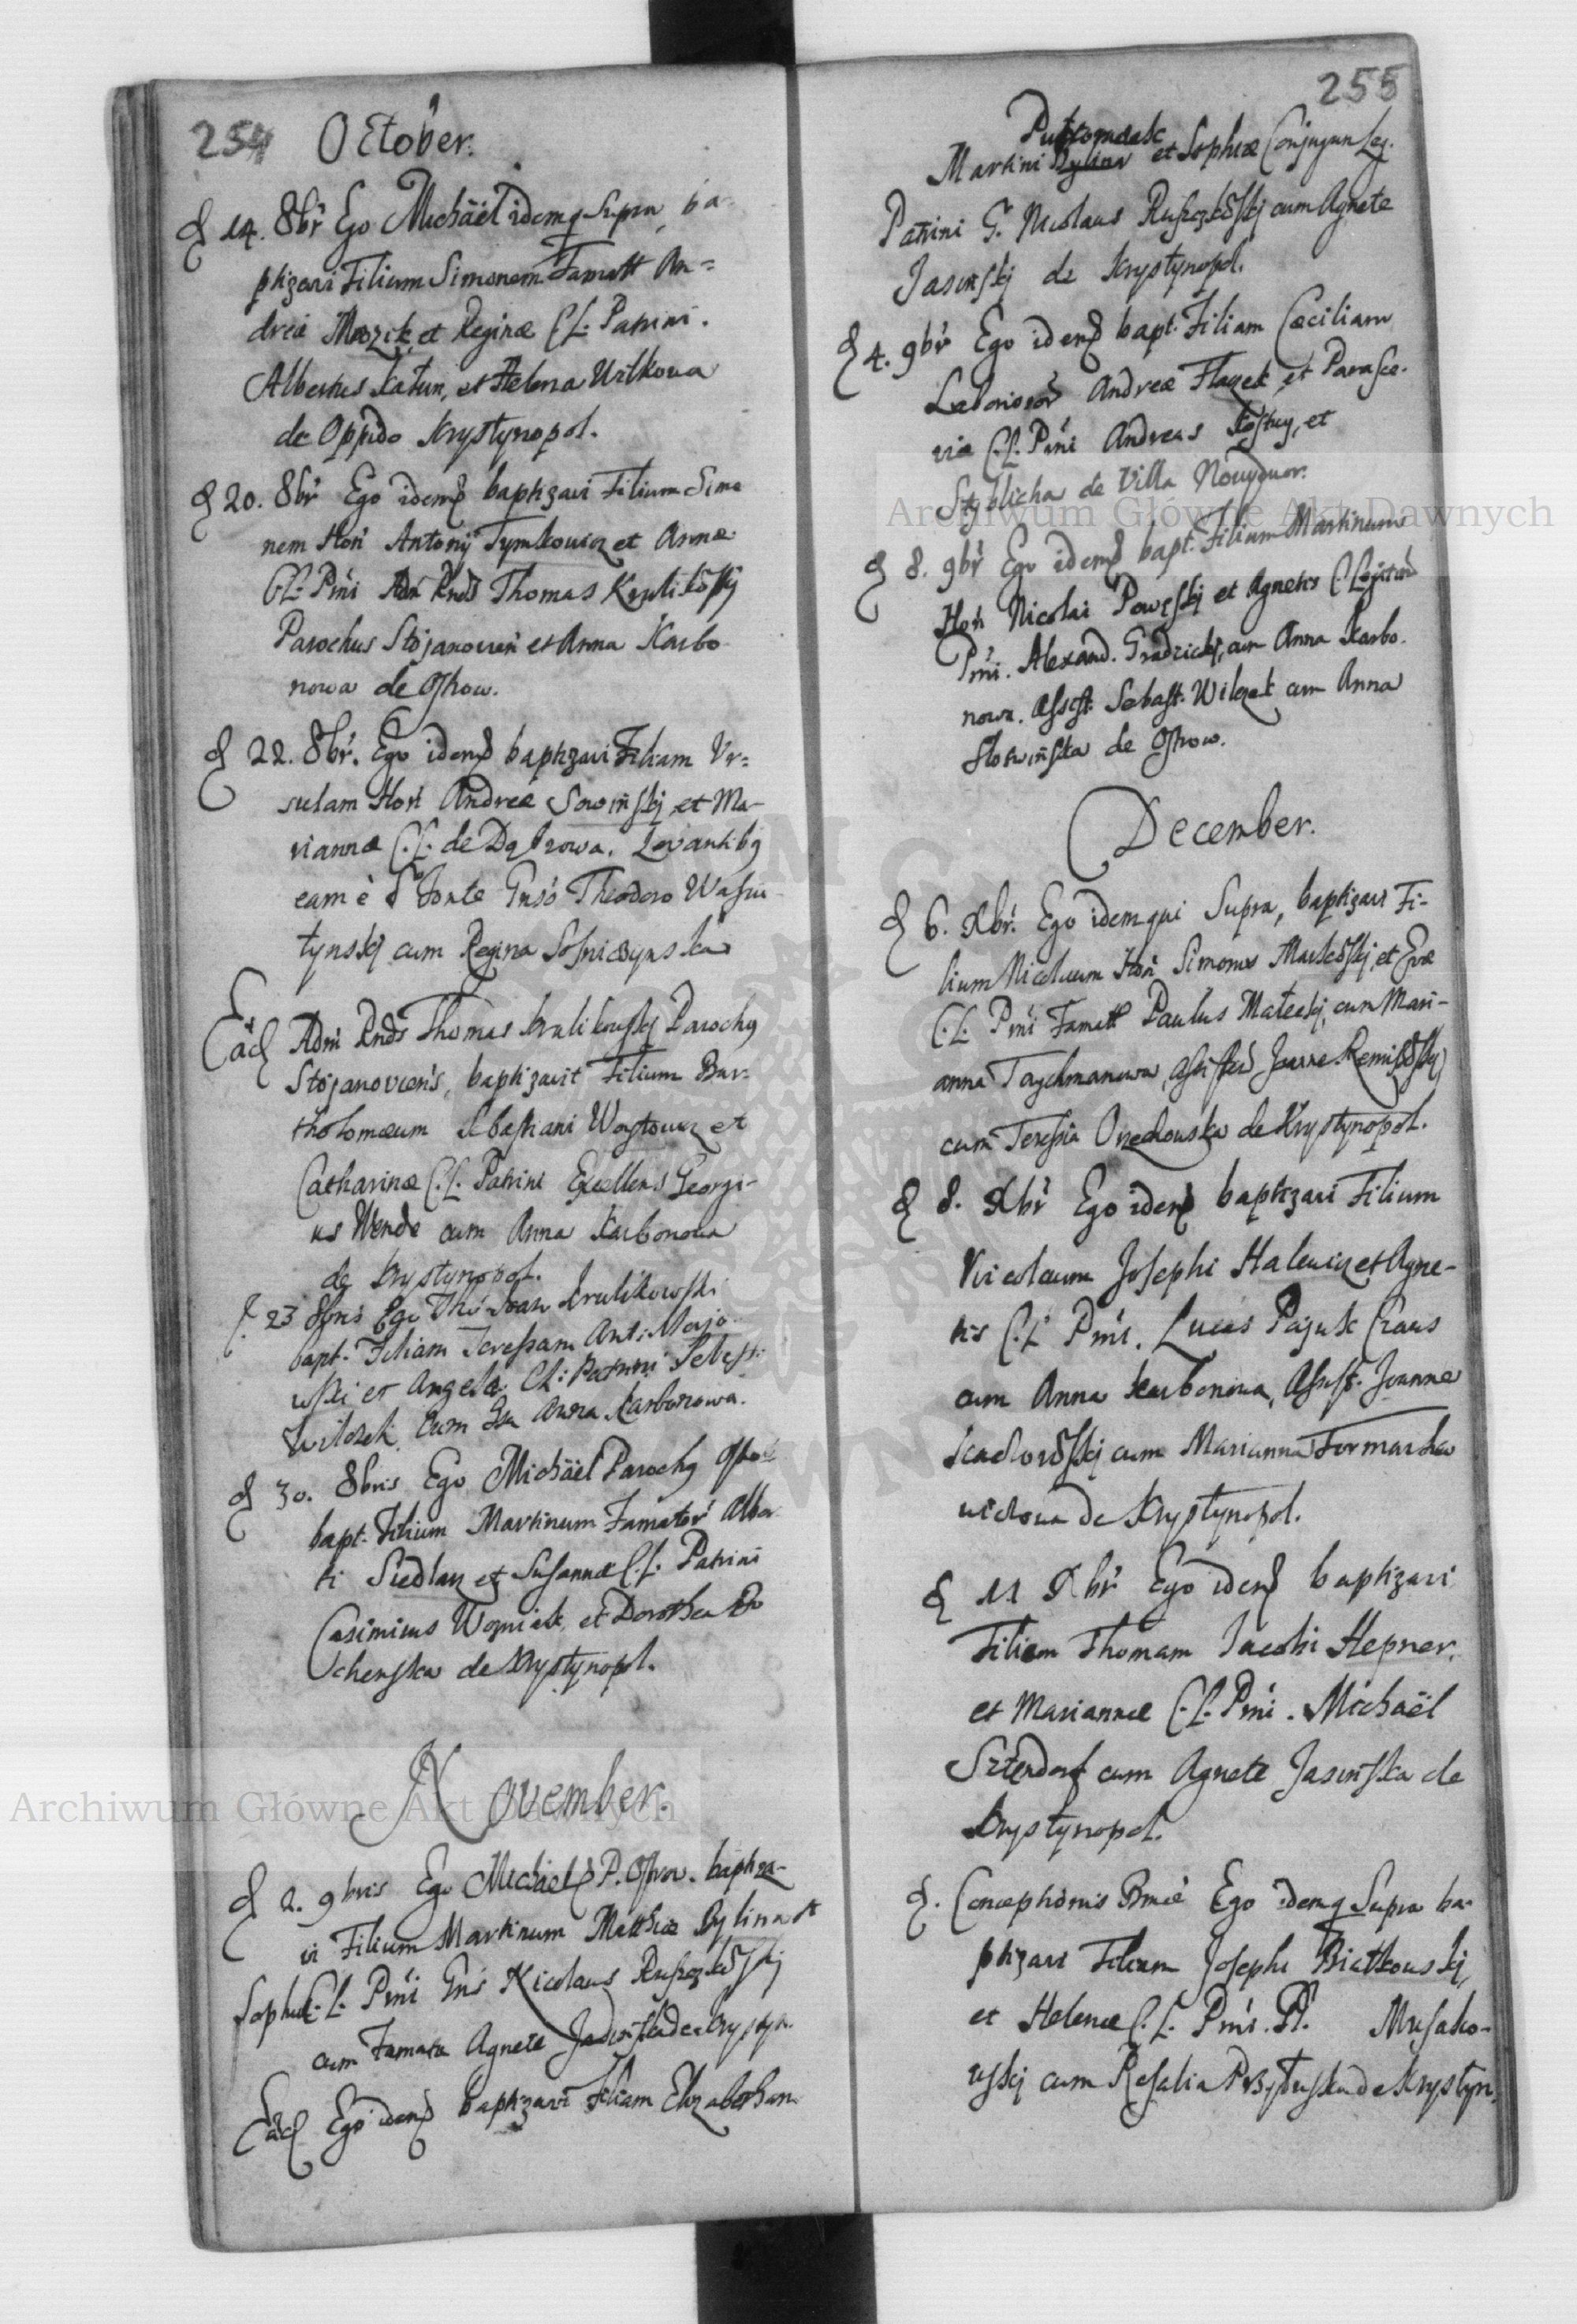 254 October.
d 14. 8br Ego Michäel idemq Supra, ba-
ptizavi Filium Simonem Famatt An=
dreæ Mrozik et Reginæ C.L. Patrini.
Albertus Katun, et Helena Wilkowa
de Oppido Krystynopol.
d 20. 8br Ego idem baptizavi Filium Simo
nem Hon Antonij Tymkowicz et Annæ
C.L. Pmi Adm Rnds Thomas Krulikowskj
Parochus Stojanovien et Anna Karbo
nowa de Ostrow.
d 22. 8br. Ego idem baptizavi Filiam Ur=
sulam Hon Andreæ Sowinskj et Ma-
riannæ C.L. de Dąbrowa. Levantibq
eam è S Fonte Gnso Theodoro Wasiu-
tynskj cum Regina
Ead Adm Rnds Thomas Krulikouskj Parochq
Stojanoviens, baptizavit Filium Bar-
tholomæum Sebastiani Woytowicz et
Catharinæ C.L. Patrini Excellens Georgi-
us Wende cum Anna Karbonowa
de Krystynopol.
d. 23 8bris Ego Krulikowski
bapt. Filiam Teressam Ant:
uski et Angela CL: Patrini Sebast:
Wilczek cum Anna Karbonowa.
d 30. 8bris Ego Michäel Parochq Ostro
bapt. Filium Martinum Famator Alber
ti Siedlarz et Susannæ C.L. Patrini
Casimirus Wozniak, et Dorothea Bo
chenska de Krystynopol.
November.
d 2. 9bris Ego Michael P. Ostrov. baptiza-
vi Filium Martinum Matthiæ Bylina et
Sophiæ C.L. Pmi Gns Nicolaus Ruszczkowskj
cum Famata Agnete Jasinska de Krystyn.
Ead Ego idem baptizavi Filiam Elizabetham
255
Martini Bylina et Sophiæ Conjugum Leg.
Patrini G. Nicolaus Ruszczkowskj cum Agnete
Jasinskj de Krystynopol.
d 4. 9br Ego idem bapt. Filiam Cæciliam
Laborioso Andreæ Flaczek et Parasce-
viæ C.L. Pmi Andreas et
Styblicha de Villa Nowydwor.
d 8. 9br Ego idem bapt. Filium Martinum
Hon Nicolai Powęskj et Agnetis C. Legitim
Pmi. Alexand. Gradzickj, cum Anna Karbo-
nowa. Assist. Sebast. Wilczek cum Anna
Slotwinska de Ostrow.
December.
d 6. Xbr. Ego idem qui Supra, baptizavi Fi-
lium Nicolaum Hon Simonis Markowskj, et Evæ
C.L. Pmi Famatt Paulus Mateckj, cum Mari-
anna Taychmanowa, assisten Joanne
cum Teressia Orzechouska de Krystynopol.
d 8. Xbr Ego idem baptizavi Filium
Nicolaum Josephi Halewicz et Agne-
tis C.L. Pmi. Lucas Pająk Craus
cum Anna Karbonowa, Assist. Joanne
cum Marianna Formarke
wichowa de Krystynopol.
d 11 Xbr Ego idem baptizavi
Filium Thomam Jacobi Hepner.
et Mariannæ C.L. Pmi. Michaël
Szterdorf cum Agnete Jasinska de
Krystynopol.
d. Conceptionis Bmæ Ego idemq Supra ba-
ptizavi Filium Josephi Biatkouskj,
et Helenæ C.L. Pmi. Musako-
uskj cum Rosalia de Krystyn.
Archiwum Główne Akt Dawnych
Archiwum Główne Akt Dawnych